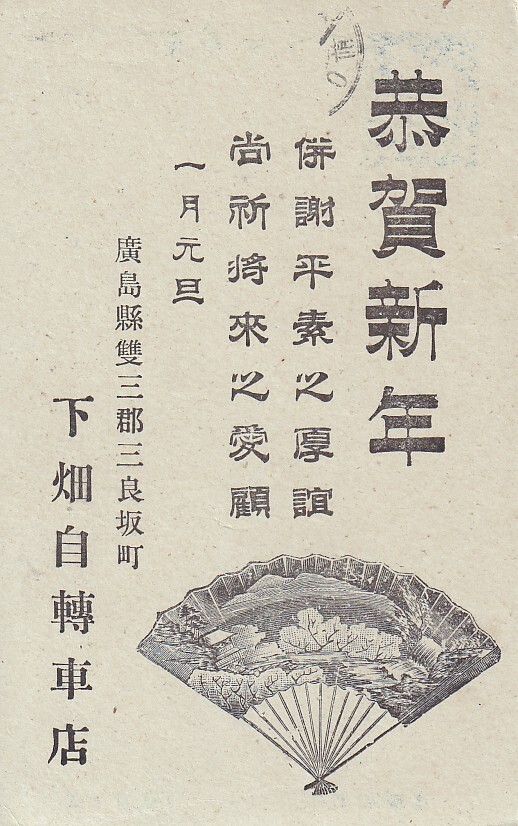 恭賀新年
併謝平素之厚誼
尚祈将來之愛顧
一月元旦
廣島縣雙三郡三良坂町
下畑自轉車店